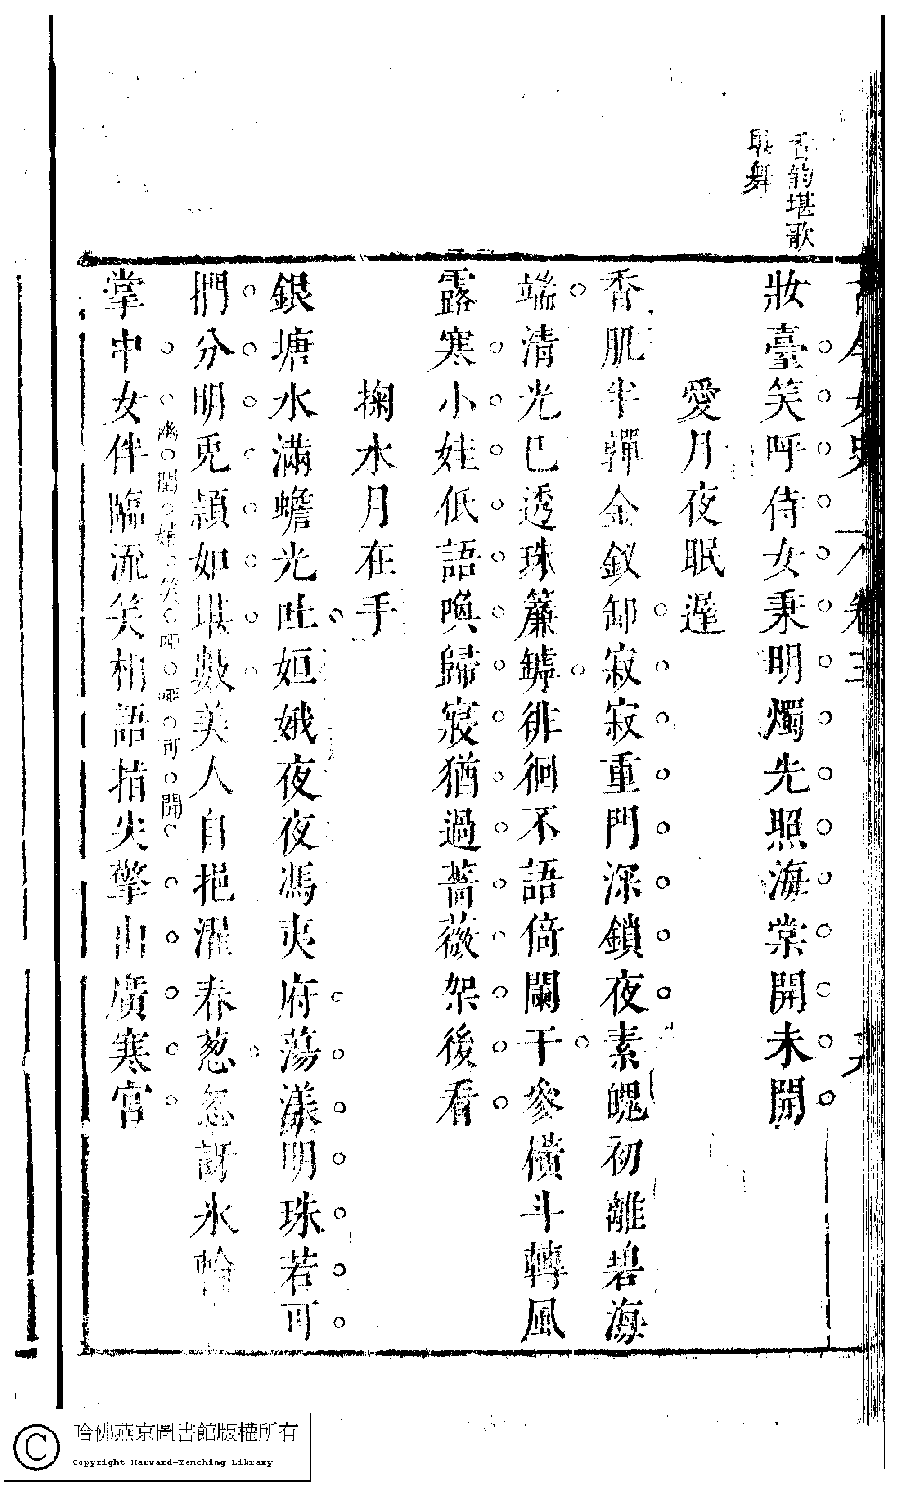 香韵堪歌
堪舞
古今女史 八卷三 九
妝臺笑呼侍女秉明燭先照海棠開未開
愛月夜眠遲
香肌半嚲金釵卸寂寂重門深鎖夜素魄初離碧海
端清光已透珠簾罅徘徊不語倚闌干參橫斗轉風
露寒小娃低語喚歸寢猶過薔薇架後看
掬水月在手
銀塘水滿蟾光吐姮娥夜夜馮夷府蕩漾明珠若可
捫分明兎頴如堪數美人自挹濯春葱忽訝氷輪
掌中女伴臨流笑相語指尖擎出廣寒宮
可聞
哈佛燕京圖書館版權所有
Copyright Harvard-Yenching Library